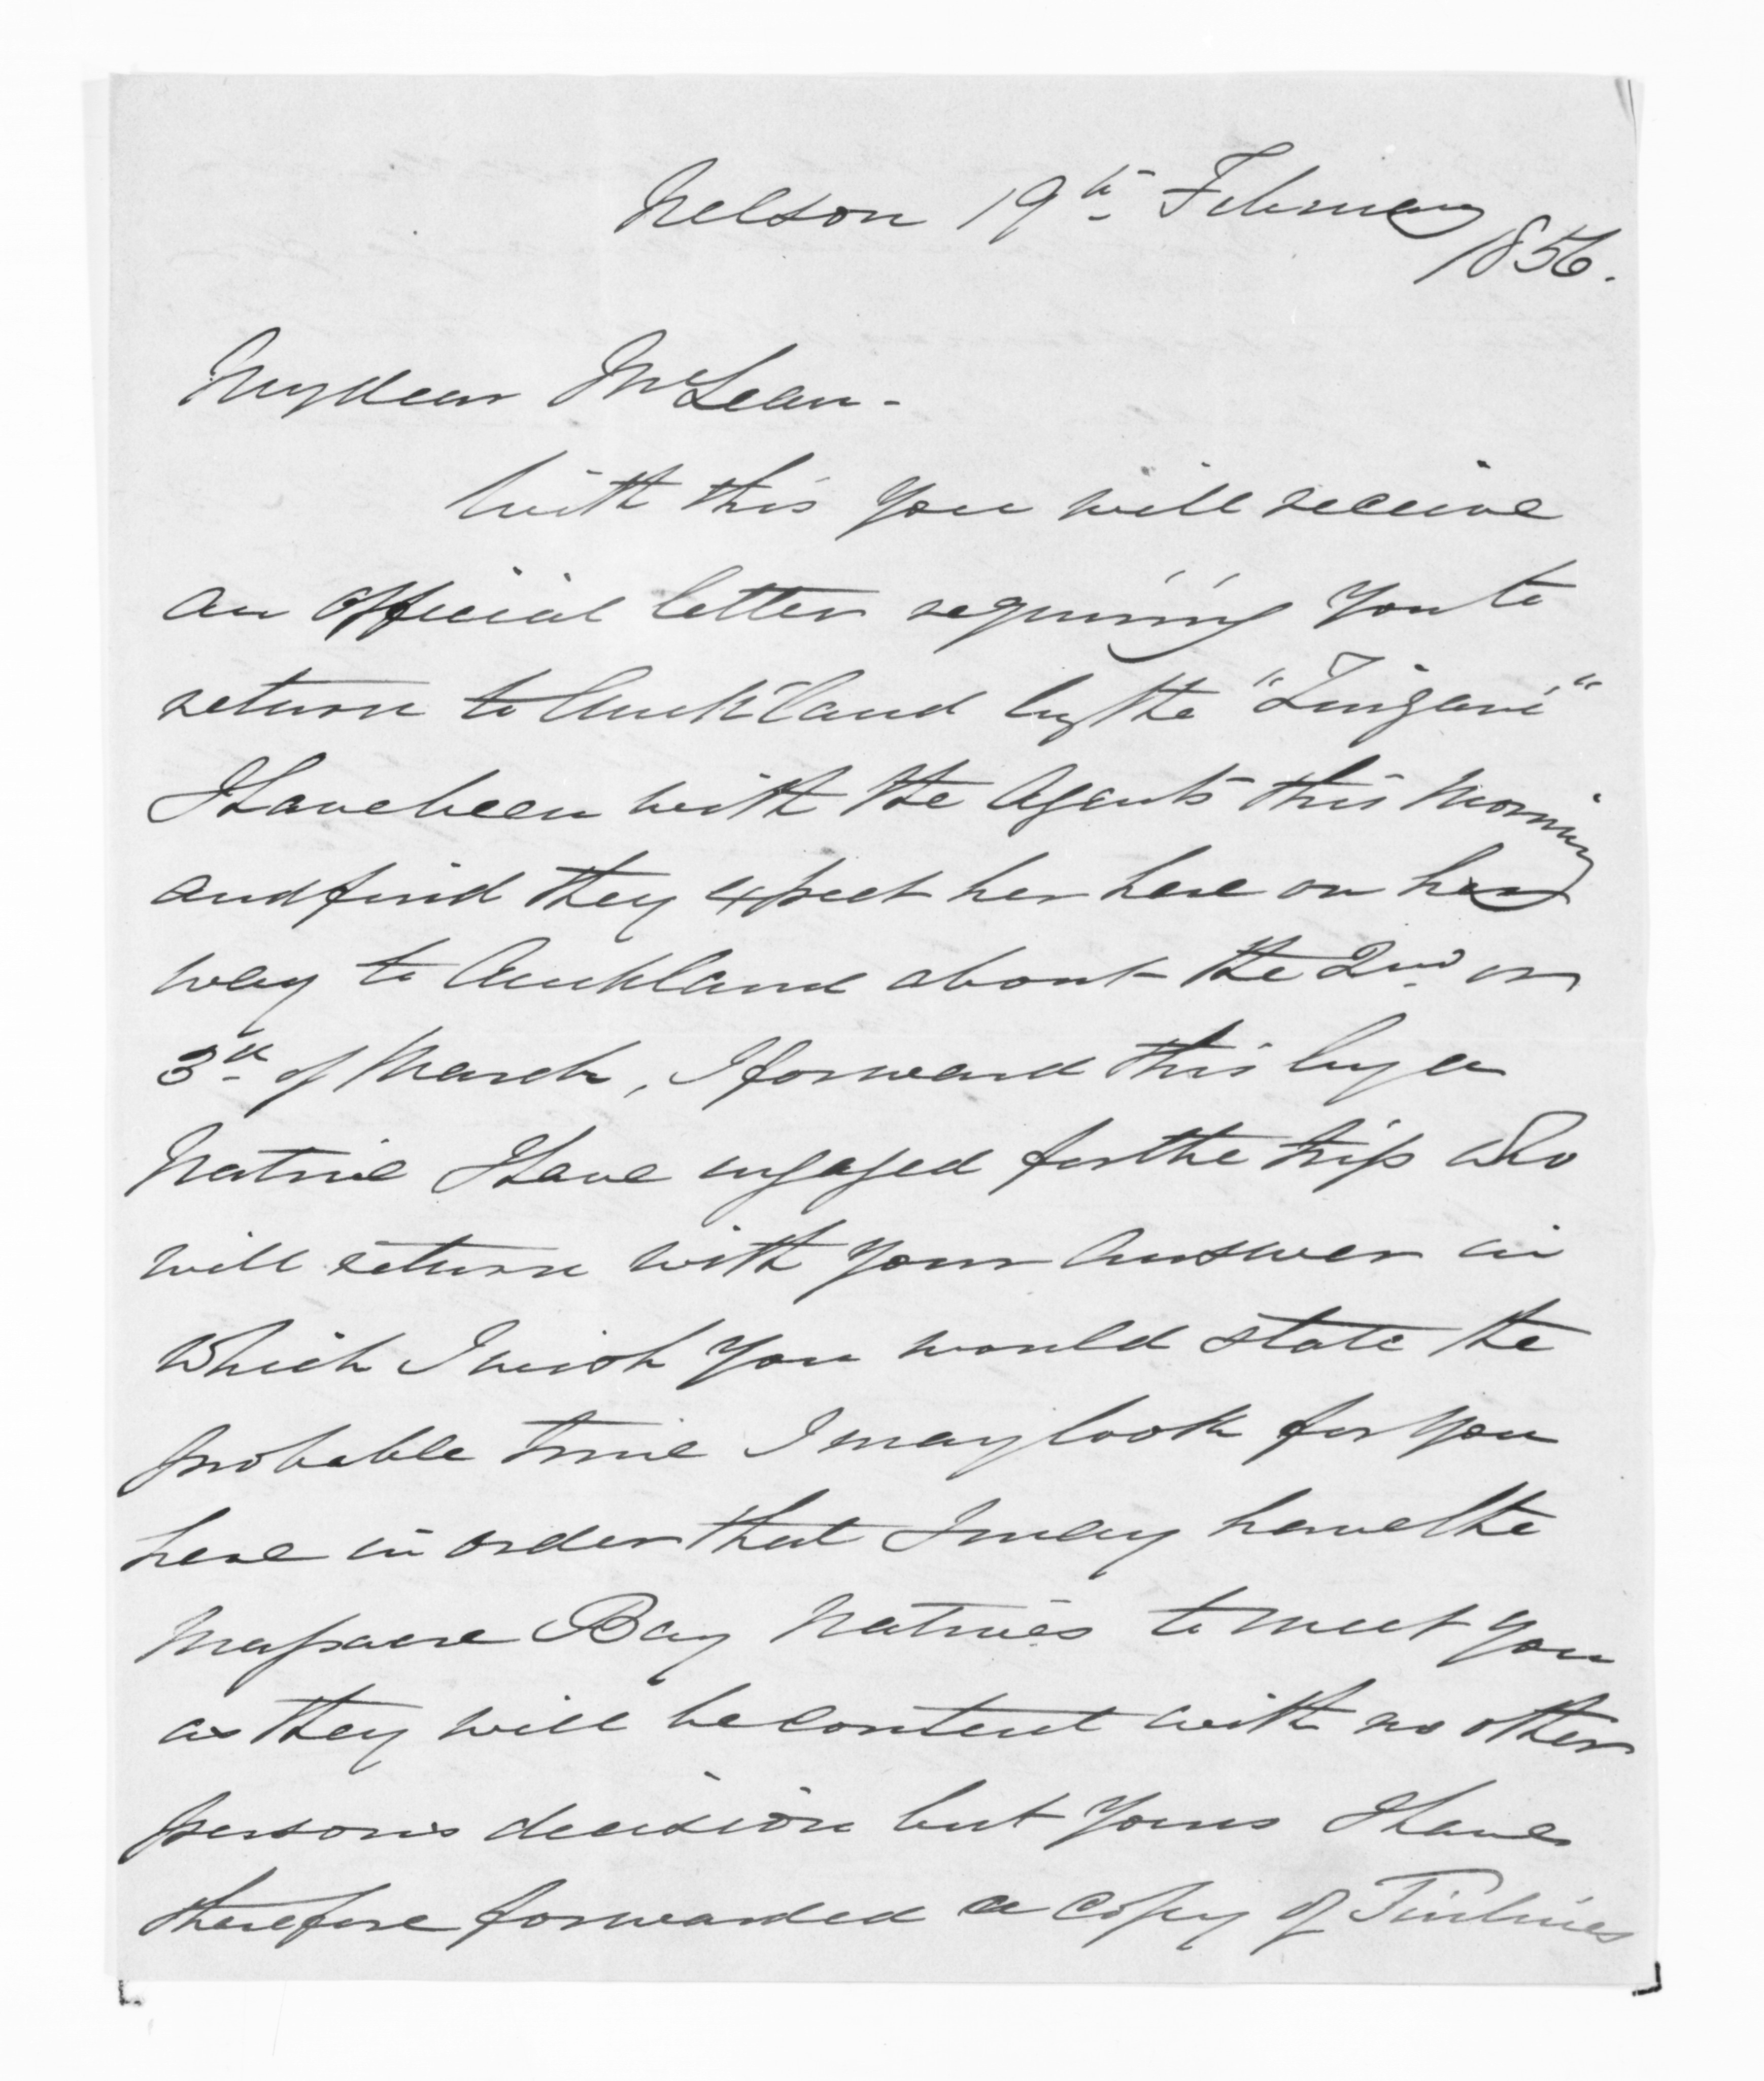 Nelson 19th February
1856.
My dear McLean-
With this you will receive
an official letter requiring you to
return to Auckland by the "Zingari"
I have been with the Agents this morning
and find they expect her here on her
way to Auckland about the 2nd or
3rd of March, I forward this by a
Native I have engaged for the trip who
will return with your answer in
which I wish you would state the
probable time I may look for you
here in order that I may have the
Massacre Bay Natives to meet you
as they will be content with no other
persons decision but yours I have
therefore forwarded a copy of Tinlines